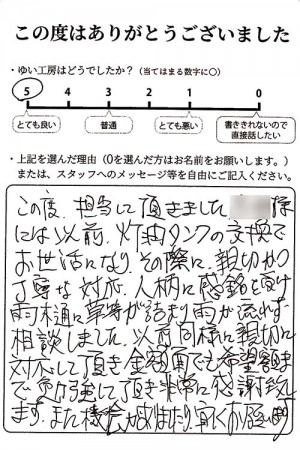 この度はありがとうございました
・ゆい工房はどうでしたか？（当てはまる数字に○）
5 4 3 2 1 0
とても良い 普通 とても悪い 書ききれないので直接話したい
・上記を選んだ理由（0を選んだ方はお名前をお願いします。）
または、スタッフへのメッセージ等を自由にご記入ください。
この度、担当して頂きました 様
には以前、灯油タンクの交換で
お世話になり、その際に、親切かつ
丁寧な対応、人柄に感銘を受け
雨樋に草等が詰まり雨が流れず
相談しました。以前同様に親切に
対応して頂き金額面でも希望額ま
で勉強して頂き非常に感謝致し
ます。また機会がありましたら、宜しくお願い